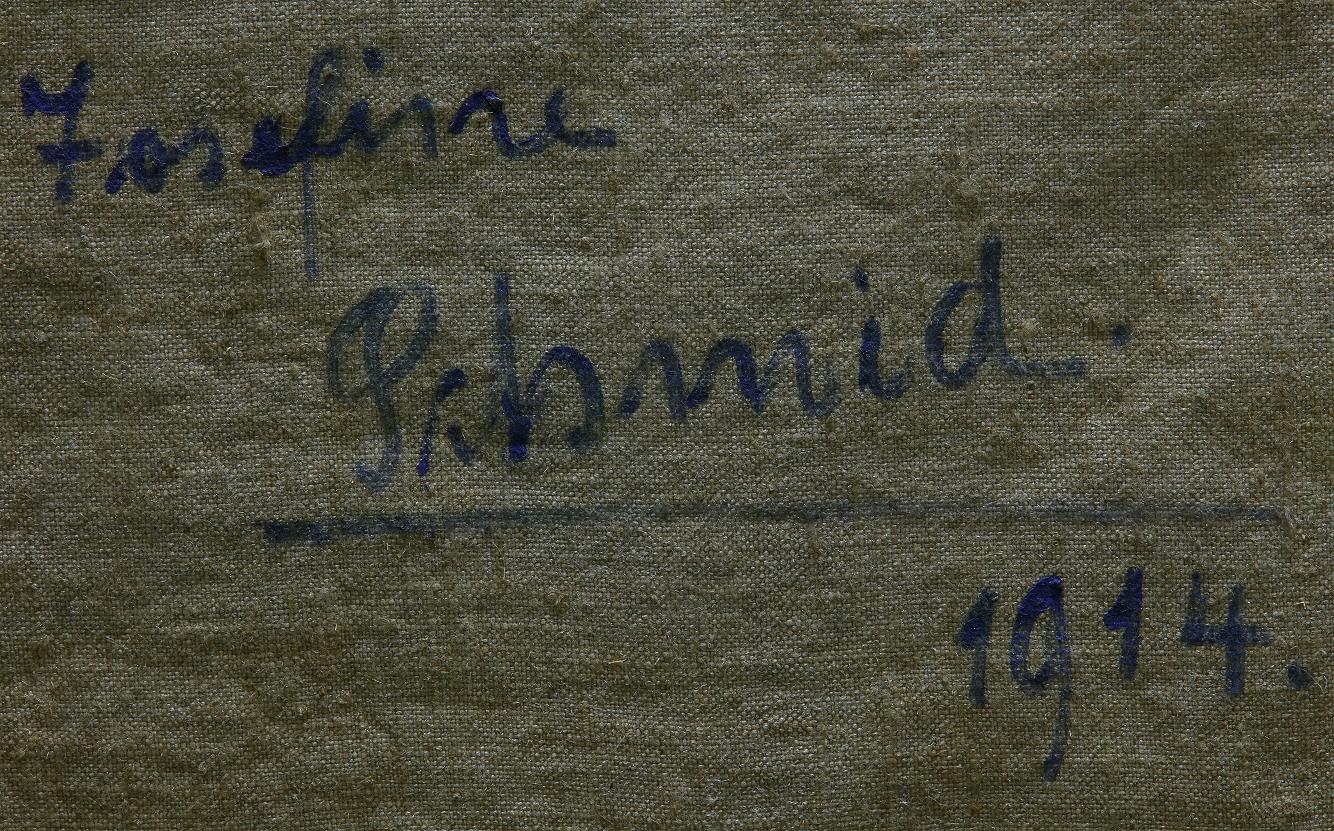 Josefine
Schmid.
1914.